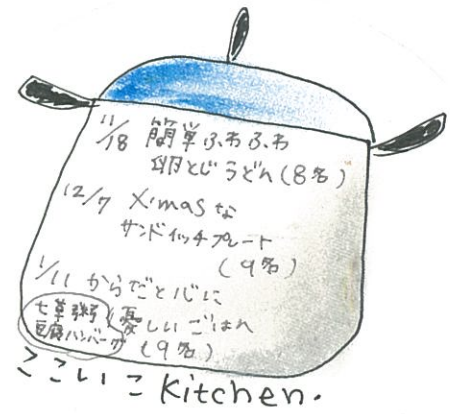 11/18 簡単ふわふわ
卵とじうどん(8名)
12/7 X'masな
サンドイッチプレート
(9名)
1/11 からだと心に
七草粥
豆腐ハンバーグ
優しいごはん
(9名)
ここいこ Kitchen.